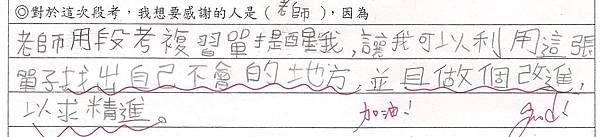 ◎對於這次段考，我想要感謝的人是（老師），因為
老師用段考複習單提醒我，讓我可以利用這張
單子找出自己不會的地方，並且做個改進，
以求精進。 加油！ good!